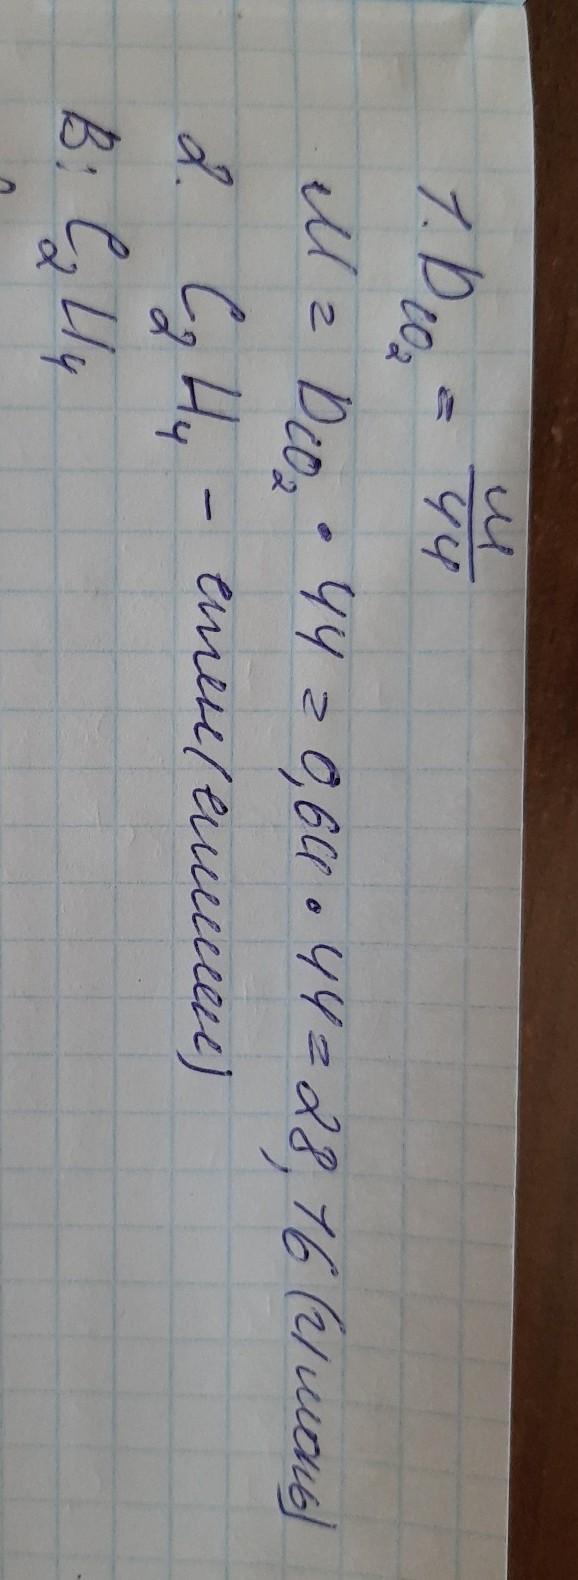 1. D_CO₂ = M/44
M = D_CO₂ • 44 = 0,64 • 44 = 28,16 (г/моль)
2. C₂H₄ – етен (етилен)
В: C₂H₄